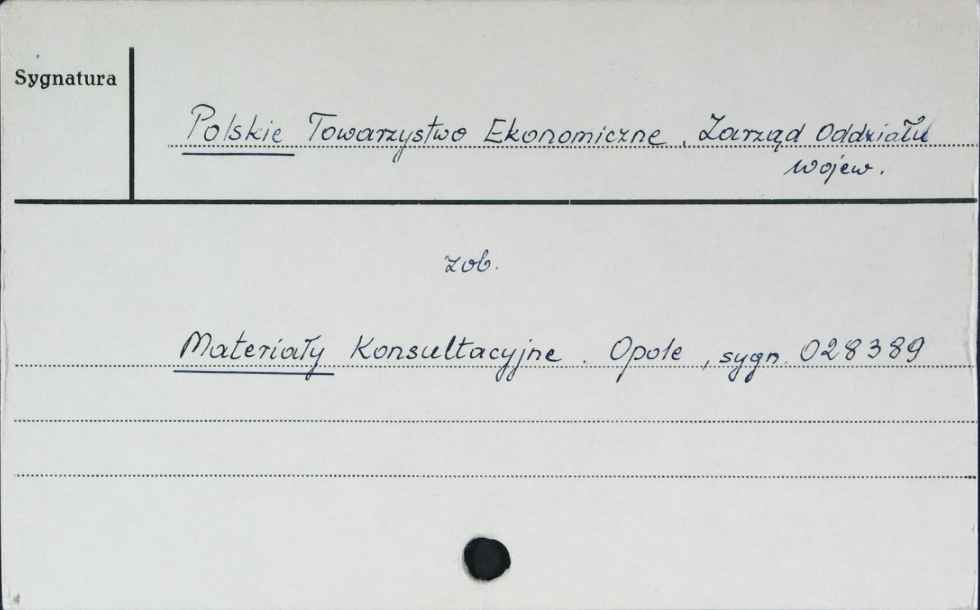 Sygnatura
Polskie Towarzystwo Ekonomiczne. Zarząd Oddziału
wojew.
zob.
Materiały Konsultacyjne. Opole, sygn. 028389